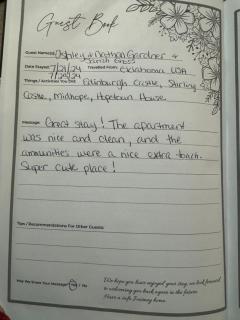 Guest Book
Guest Name(s) Ashley & Nathan Gardner &
Sarah Gross
Date Stayed 7/21/24 Travelled From: Oklahoma, USA
7/25/24
Things / Activities You Did: Edinburgh Castle, Stirling
Castle, Midhope, Hopetoun House
Message: Great stay! The apartment
was nice and clean, and the
ammunities were a nice extra touch.
Super cute place!
Tips / Recommendations For Other Guests:
May We Share Your Message? Yes / No
We hope you have enjoyed your stay, we look forward
to welcoming you back again in the future.
Have a safe Journey home.